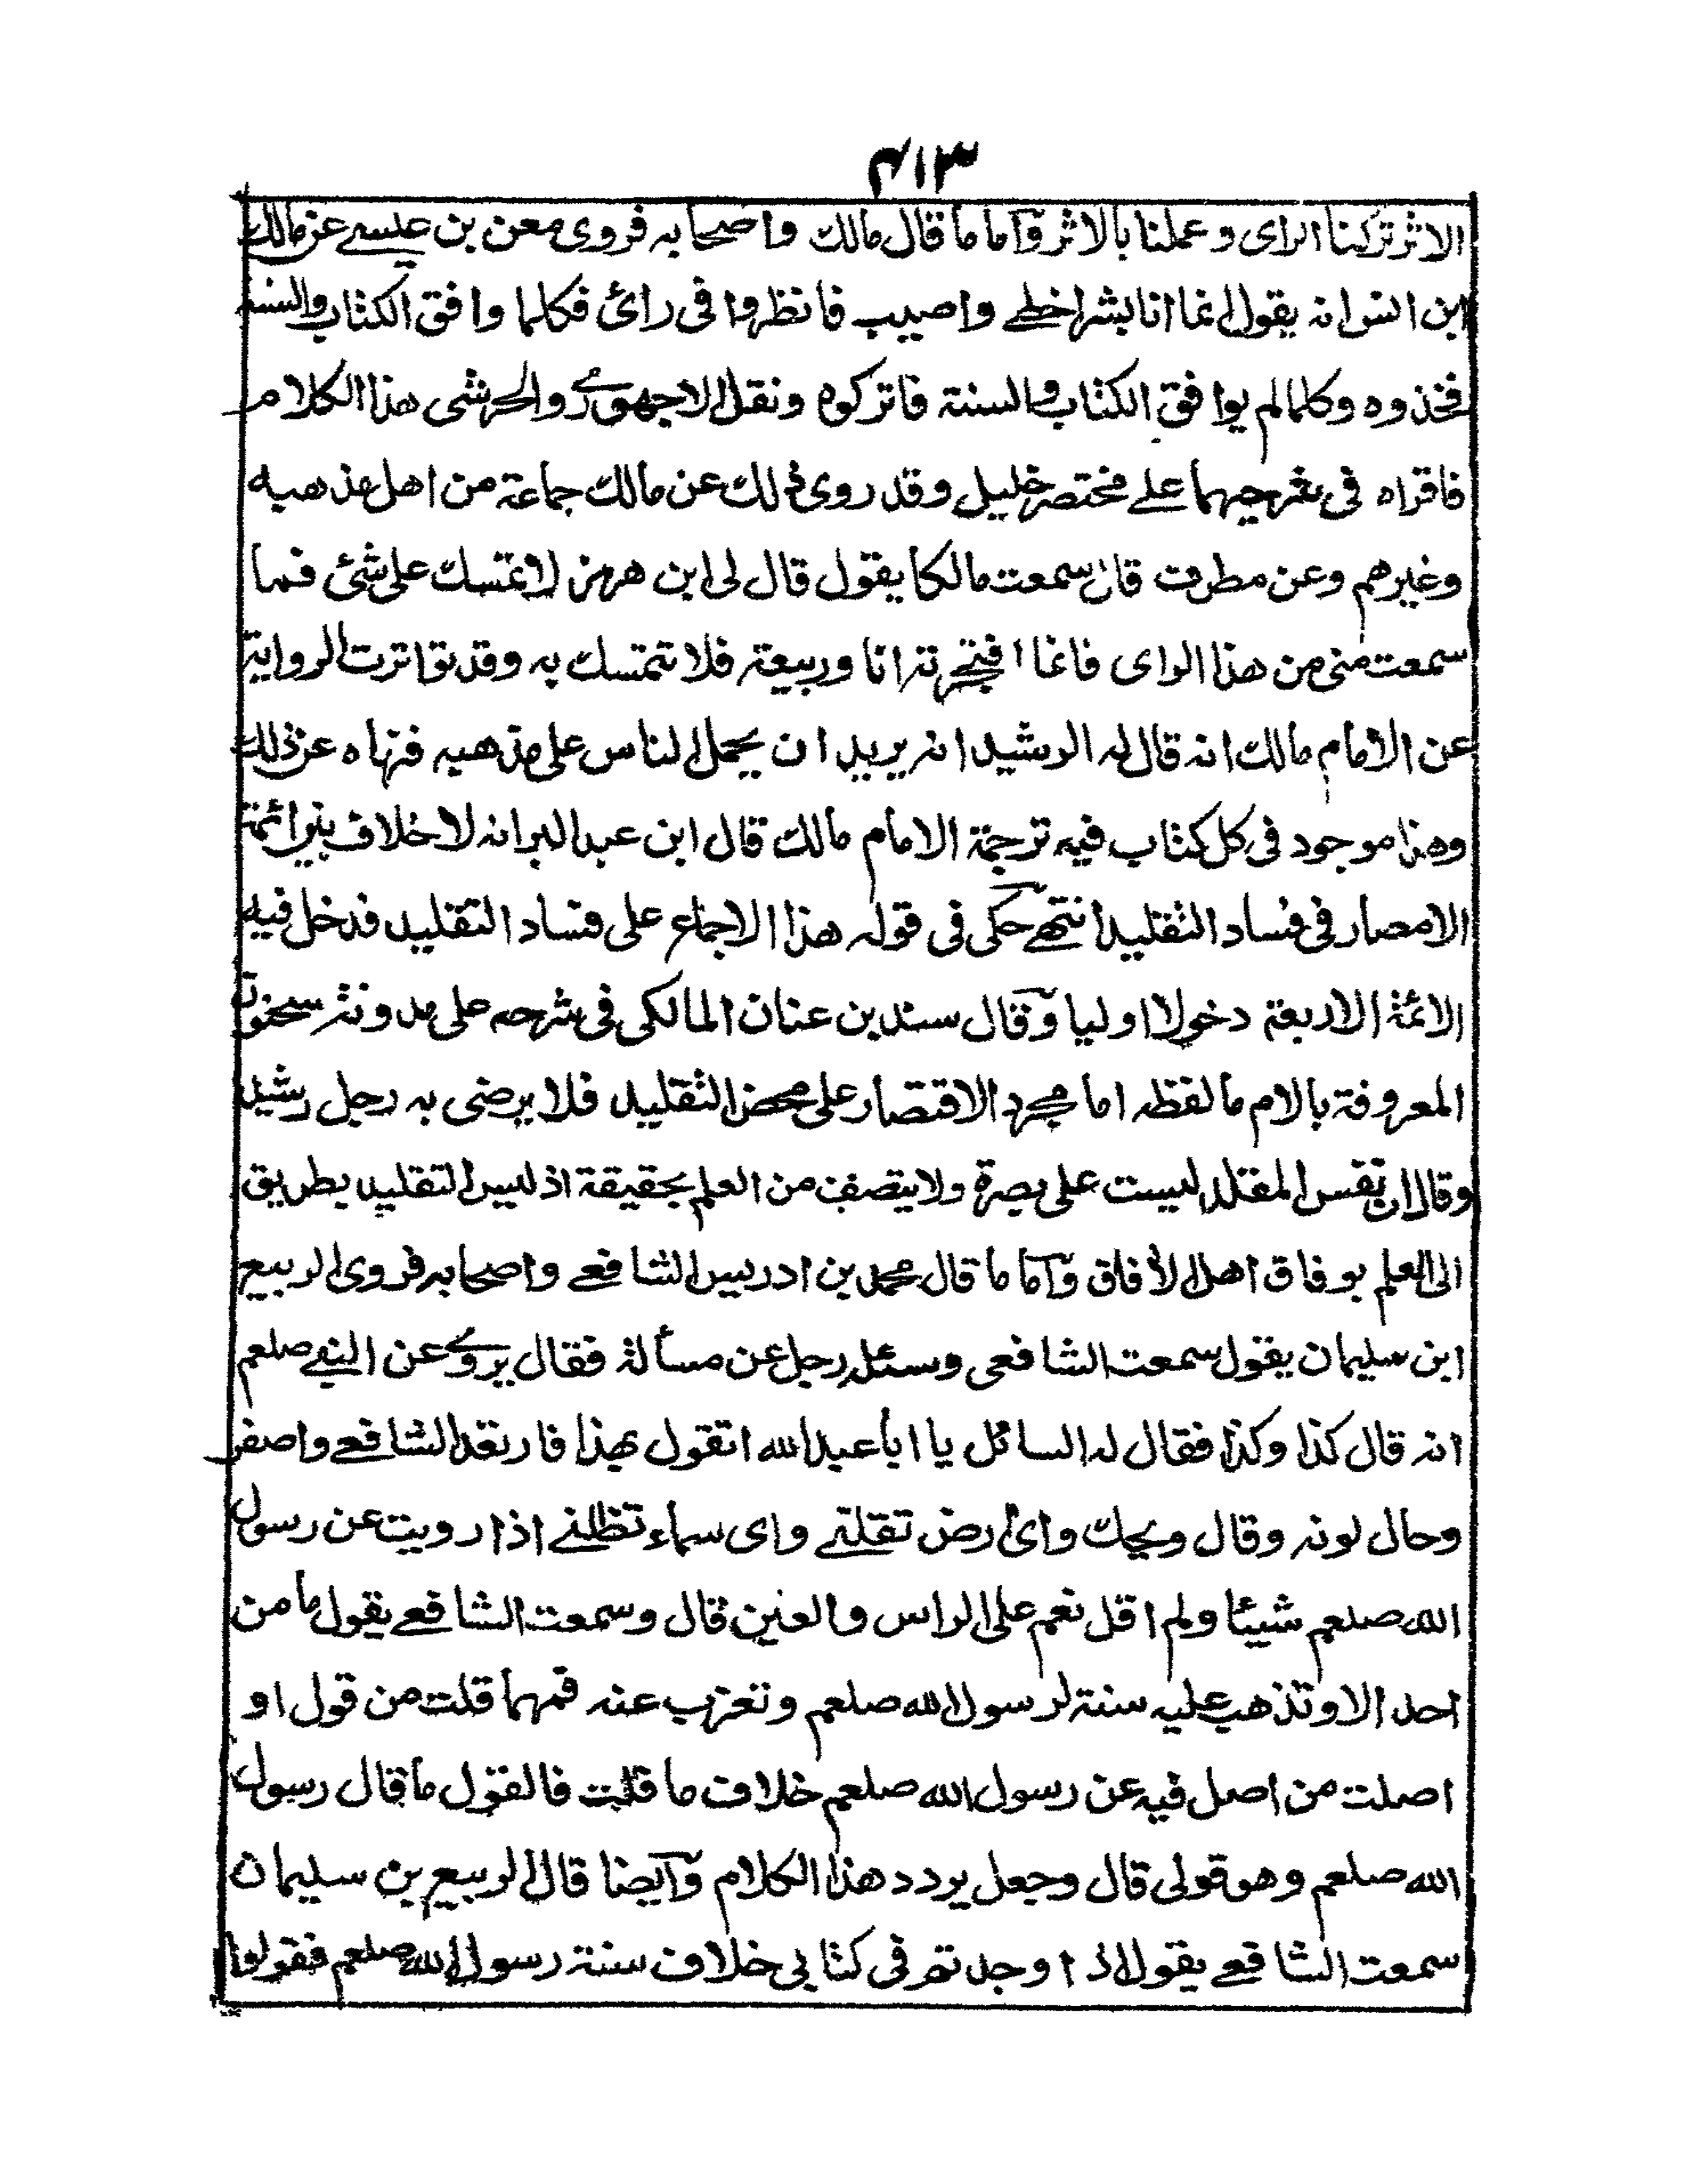 ۴۱۳
الاثر تركنا الرای وعملنا بالاثر وآما ما قال مالك واصحابه فروی معن بن عيسے عن مالك
ابن انس انه يقول انما انا بشر اخطے واصيب فانظروا فی رائ فكلما وافق الكتاب والسنة
فخذوه وكلما لم يوافق الكتاب والسنة فاتركوه ونقل الاجهورے والخرشی هذا الكلام
فاقراه فی شرحيهما علے مختصر خليل وقد روی ذلك عن مالك جماعة من اهل مذهبه
وغيرهم وعن مطرف قال سمعت مالكا يقول قال لی ابن هرمز لا تمسك علی شئ فما
سمعت منی من هذا الرای فانما افتجرته انا وربيعة فلا تتمسك به وقد تواترت الرواية
عن الامام مالك انه قال له الرشيد انه يريد ان يحمل الناس علی مذهبه فنهاه عن ذلك
وهذا موجود فی كل كتاب فيه ترجمة الامام مالك قال ابن عبد البر انه لا خلاف بين ائمة
الامصار فی فساد التقليد انتهے حكی فی قوله هذا الاجماع علی فساد التقليد فدخل فيه
الائمة الاربعة دخولا اوليا وقآل سند بن عنان المالكی فی شرحه علی مدونة سحنون
المعروفة بالام ما لفظه اما مجرد الاقتصار علی محض التقليد فلا يرضی به رجل رشيد
وقال ان نفس المقلد ليست علی بصرة ولا يتصف من العلم بحقيقة اذ ليس التقليد بطريق
الی العلم بوفاق اهل الأفاق وآما ما قال محمد بن ادريس الشافعے واصحابه فروی الربيع
ابن سليمان يقول سمعت الشافعی وسئله رجل عن مسألة فقال يروے عن النبے صلعم
انه قال كذا وكذا فقال له السائل يا ابا عبد الله اتقول بهذا فارتعد الشافعے واصفر
وحال لونه وقال ويحك وای ارض تقلنے وای سماء تظلنے اذا رويت عن رسول
الله صلعم شيئا ولم اقل نعم علی الراس والعين قال وسمعت الشافعے يقول ما من
احد الا وتذهب عليه سنة لرسول الله صلعم وتعزب عنه فمهما قلت من قول او
اصلت من اصل فيه عن رسول الله صلعم خلاف ما قلت فالقول ما قال رسول
الله صلعم وهو قولی قال وجعل يردد هذا الكلام وآيضا قال الربيع بن سليمان
سمعت الشافعے يقول اذا وجدتم فی كتابی خلاف سنة رسول الله صلعم فقولوا